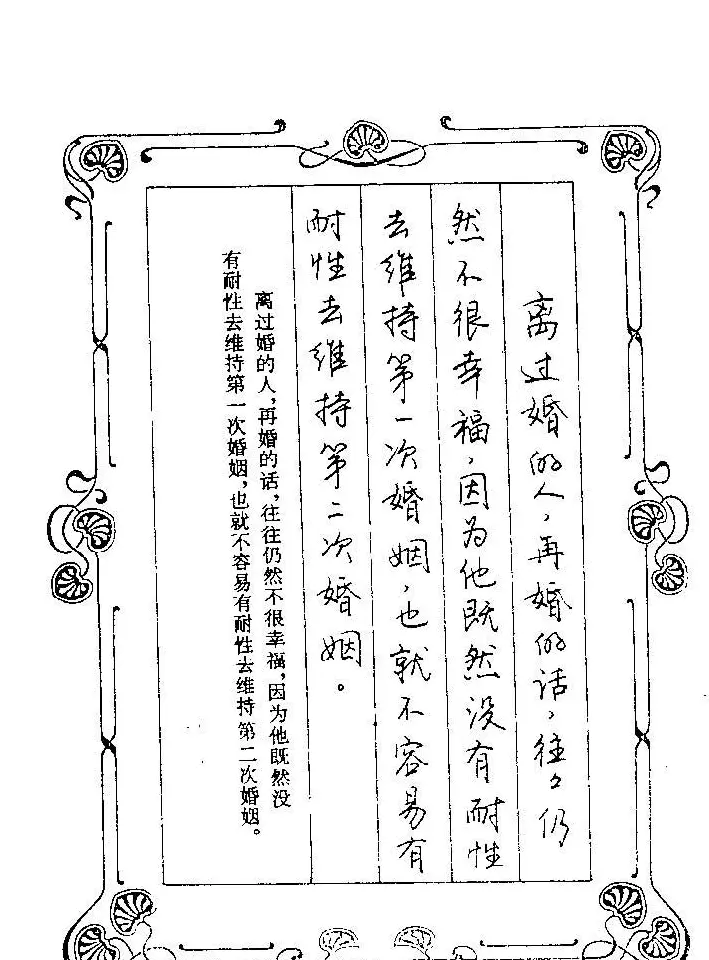 离过婚的人,再婚的话,往々仍
然不很幸福,因为他既然没有耐性
去维持第一次婚姻,也就不容易有
耐性去维持第二次婚姻。
离过婚的人,再婚的话,往往仍然不很幸福,因为他既然没
有耐性去维持第一次婚姻,也就不容易有耐性去维持第二次婚姻。